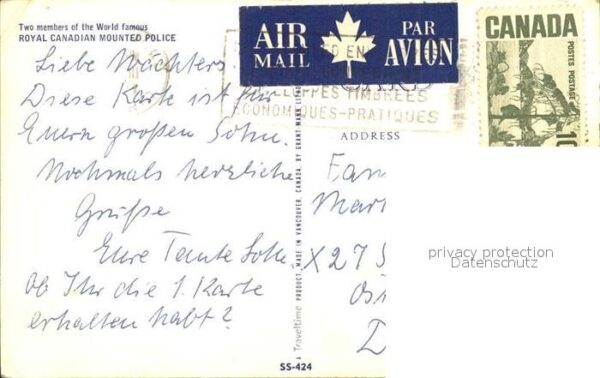 Two members of the World famous
ROYAL CANADIAN MOUNTED POLICE
AIR MAIL
PAR AVION
CANADA
POSTES POSTAGE
10
ED EN
ENVELOPPES TIMBRÉES
ÉCONOMIQUES-PRATIQUES
Liebe Wächters.
Diese Karte ist für
Euern großen Sohn.
Nochmals herzliche
Grüße
Eure Tante
Ob Ihr die 1. Karte
erhalten habt?
ADDRESS
Fam
Mart
X 275
D
Traveltime PRODUCT, MADE IN VANCOUVER, CANADA BY GRANT-MANN LITHO
SS-424
privacy protection
Datenschutz